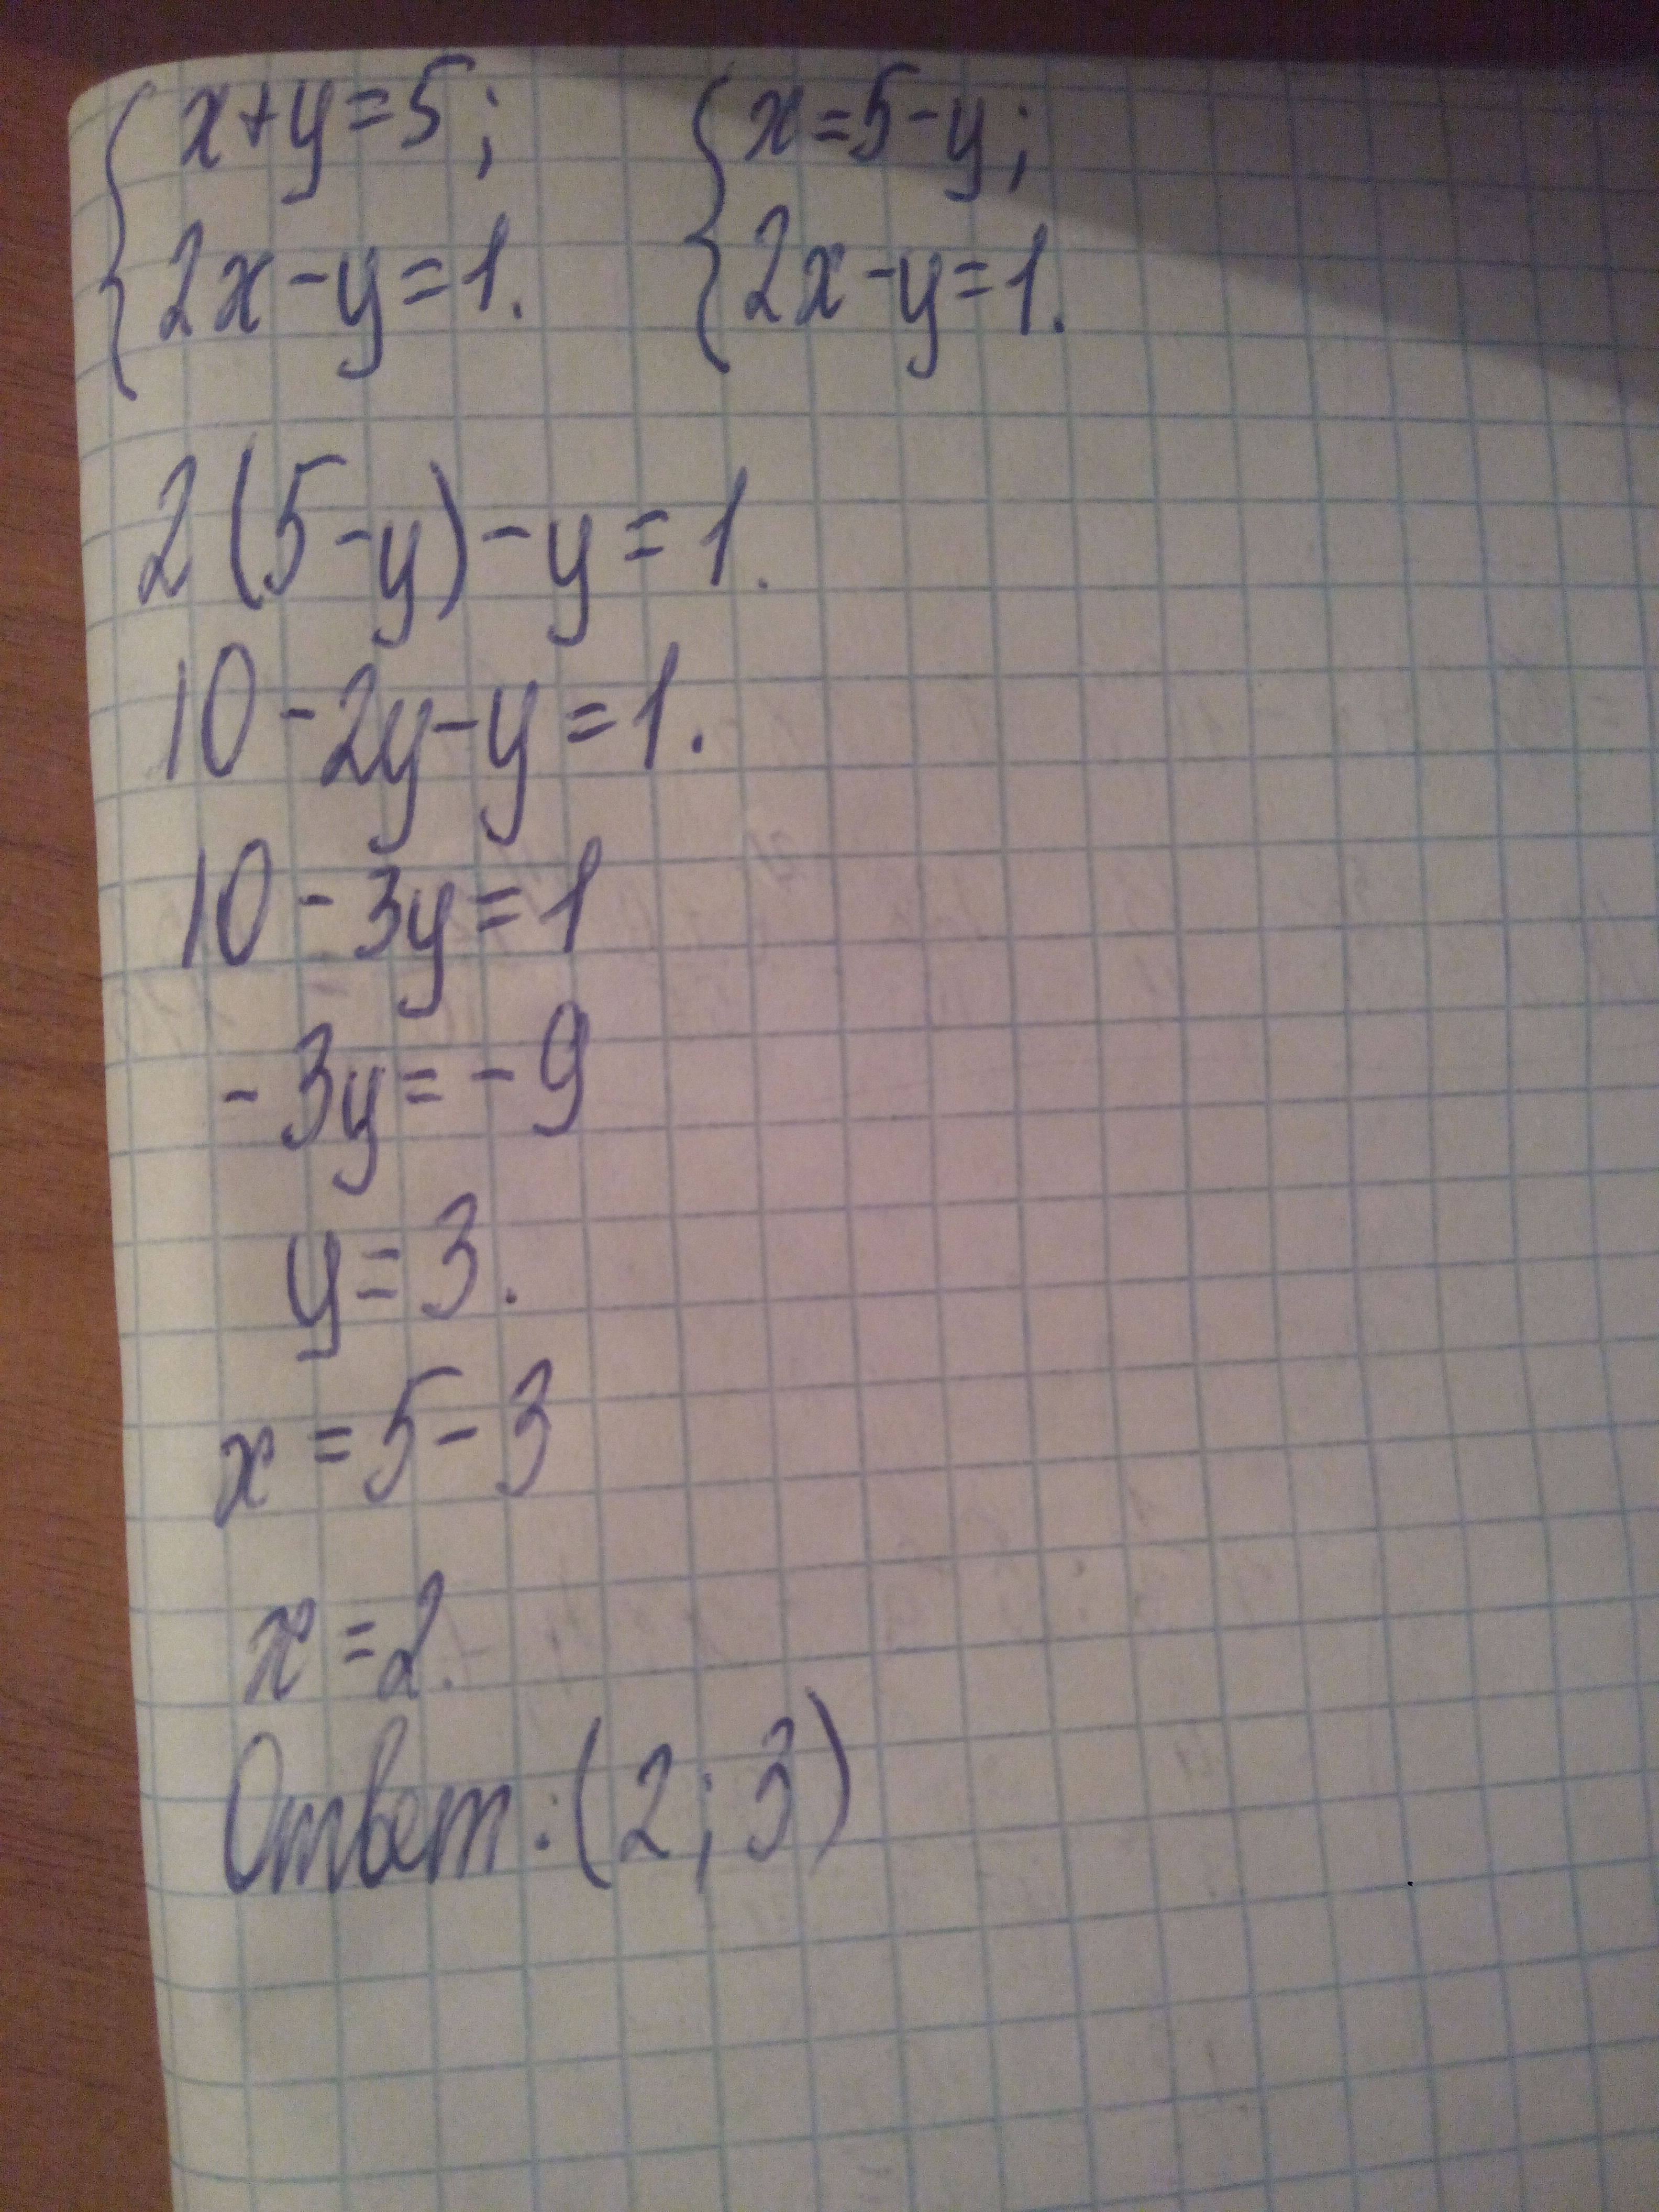 { x+y=5; { x=5-y;
2x-y=1. 2x-y=1.
2(5-y)-y=1.
10-2y-y=1.
10-3y=1
-3y=-9
y=3.
x=5-3
x=2.
Ответ: (2; 3)